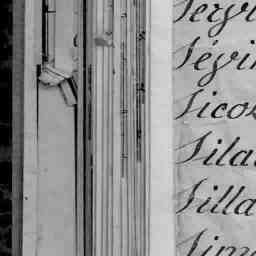 Servi
Sévi
Sico
Sila
Silla
Sim